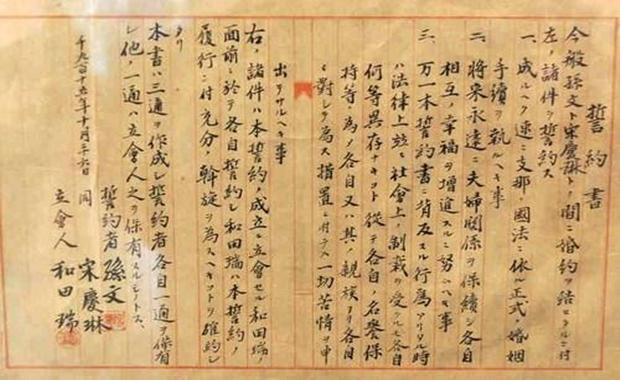 誓約書
今般孫文ト宋慶琳トノ間ニ婚約ヲ結ヒタルニ付
左ノ諸件ヲ誓約ス
一、成ルヘク速ニ支那ノ國法ニ依ル正式ノ婚姻
手續ヲ執ルヘキ事
二、將来永遠ニ夫婦関係ヲ保続シ各自
相互ノ幸福ヲ増進スルニ努ムヘキ事
三、万一本誓約書ニ背反スル行為アリタル時
ハ法律上並ニ社會上ノ制裁ヲ受クルモ各自
何等異存ナキコト從テ各自ノ名譽保
持等ノ為メ各自又ハ其ノ親族ヨリ各自
ニ對シテ為ス措置ニ付テハ一切苦情ヲ申
出テサルヘキ事
右ノ諸件ハ本誓約ノ成立ニ立會セル和田瑞ノ
面前ニ於テ各自誓約シ和田瑞ハ本誓約ノ
履行ニ付充分ノ斡旋ヲ為スヘキコトヲ確約シ
タリ
本書ハ三通ヲ作成シ誓約者各自一通ヲ保有
シ他ノ一通ハ立會人之ヲ保有スルモノトス
誓約者 孫文
千九百十五年十月二十六日 同 宋慶琳
立會人 和田瑞